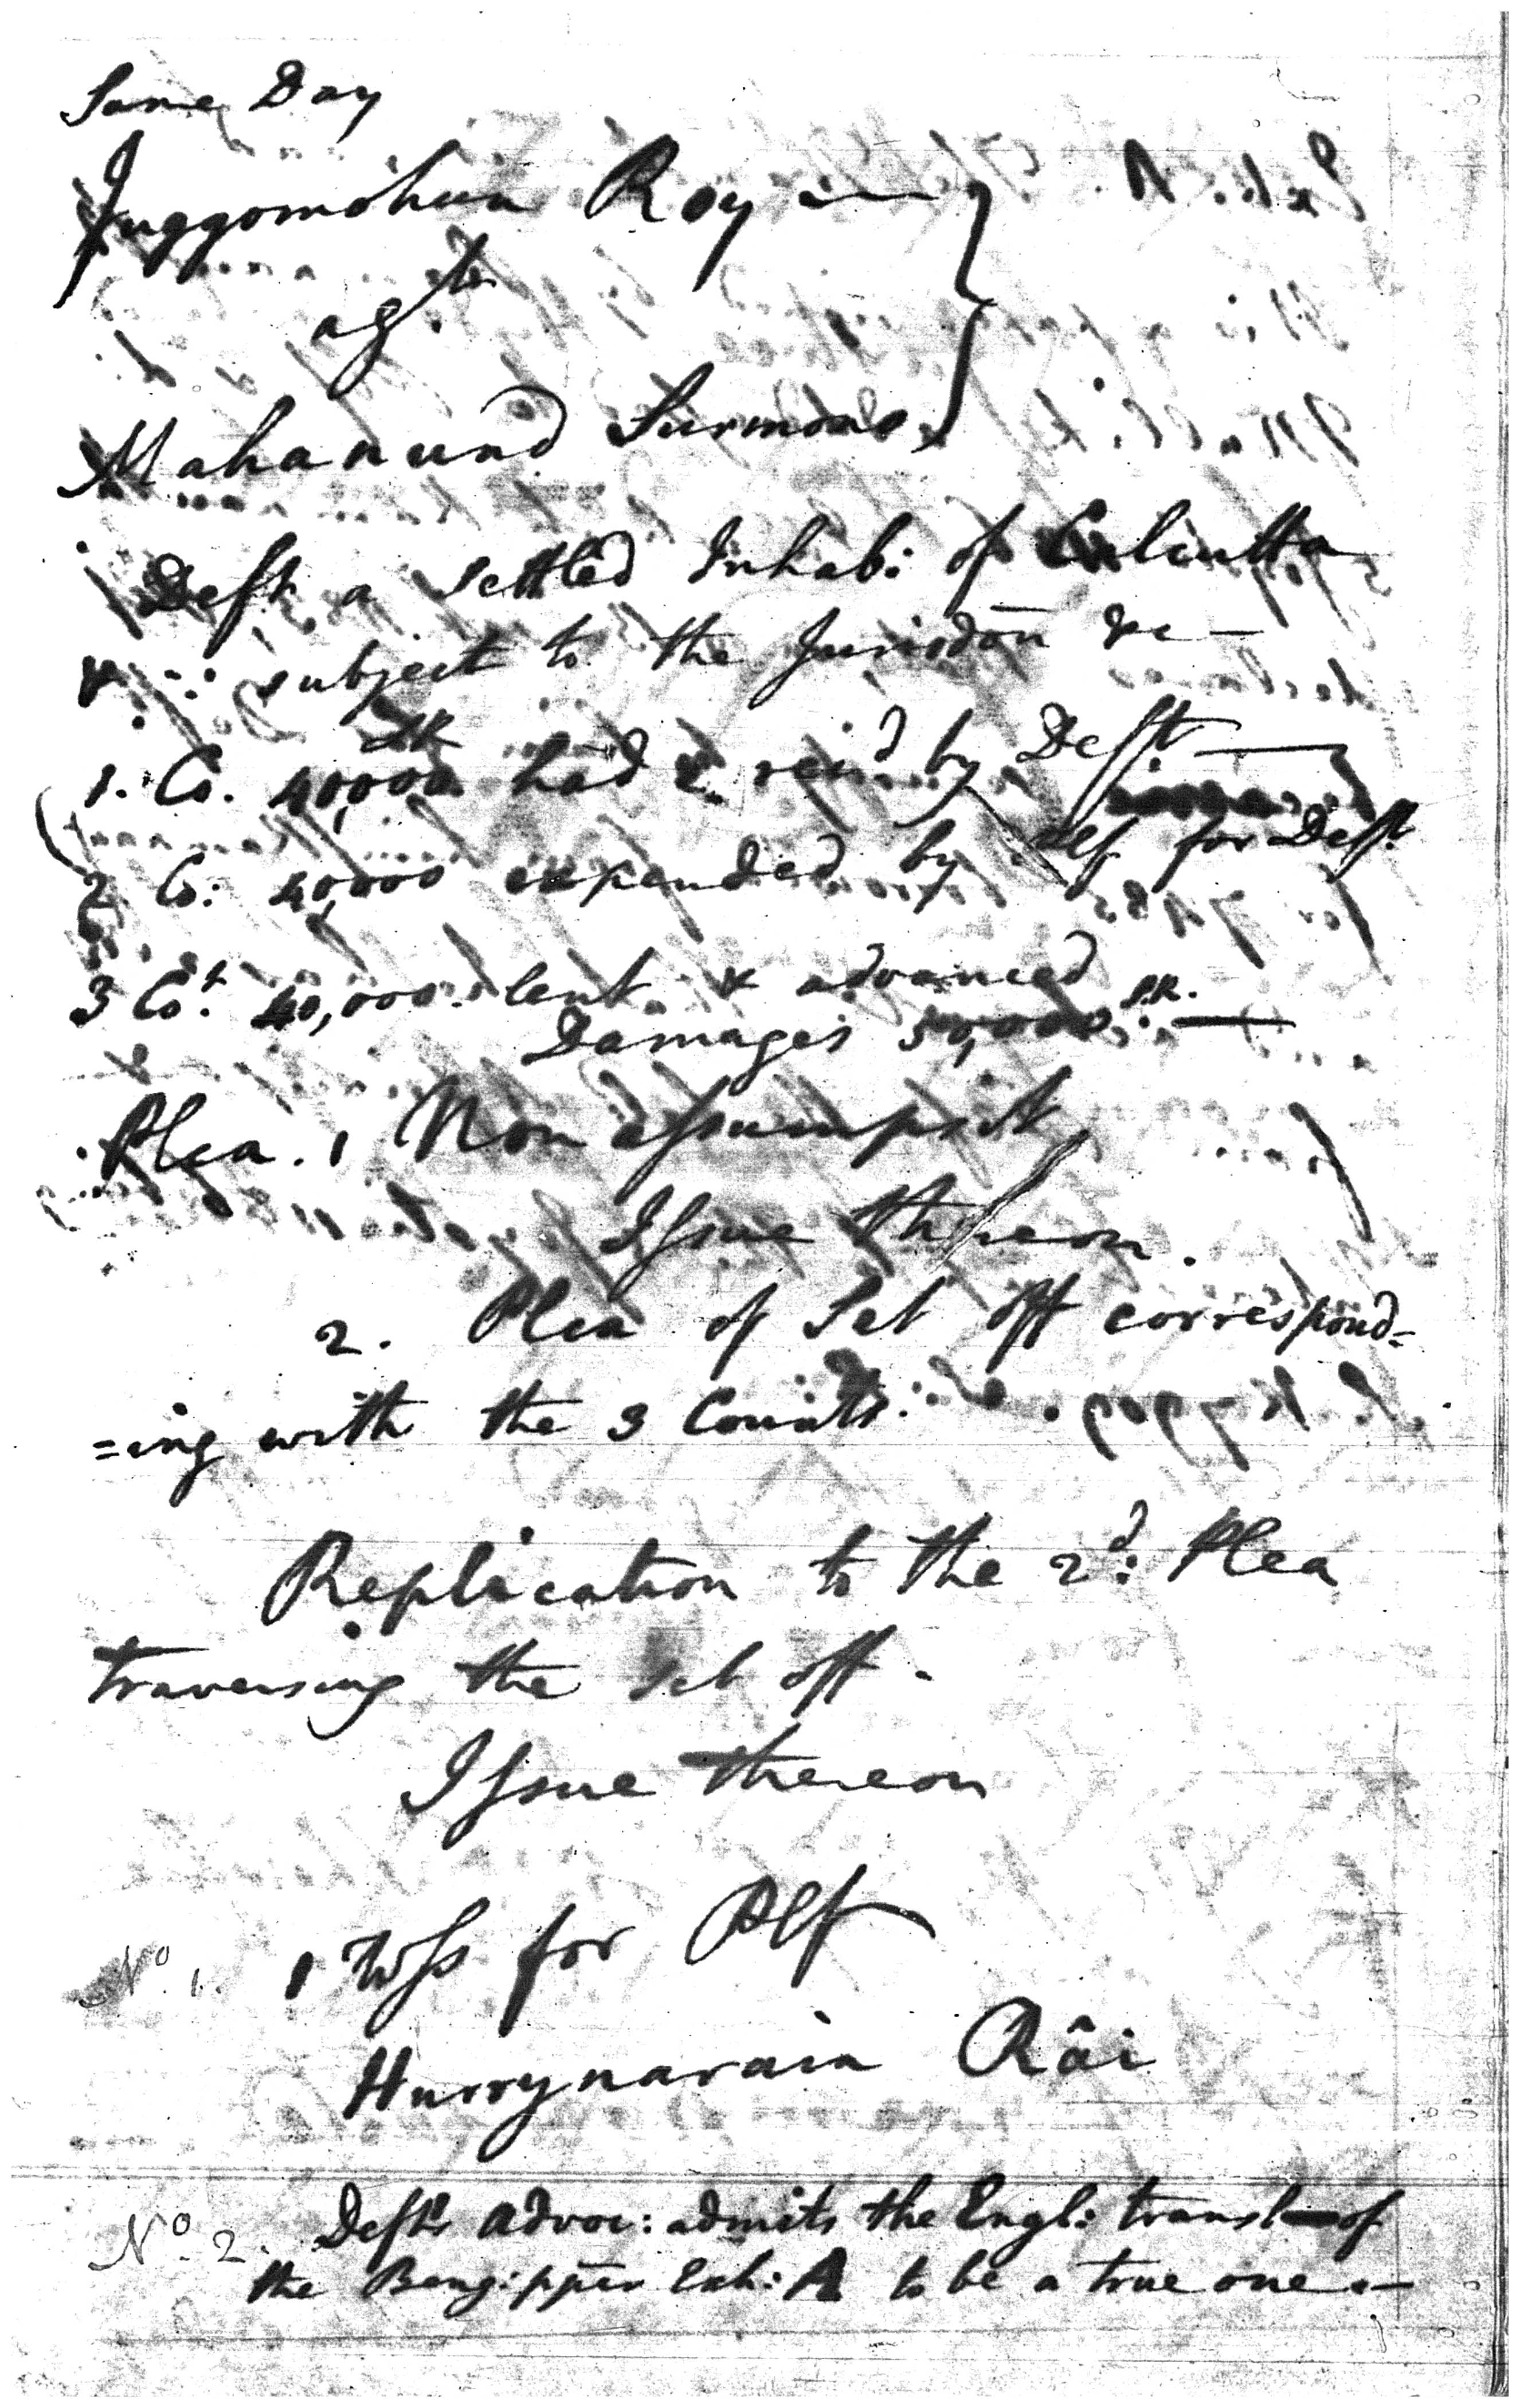 Same Day
Juggomohun Roy
agst
Mahanund Surmono
Deft a settled Inhab: of Calcutta
& ∴ subject to the Jurisdōn &c —
SR
1. Co. 40,000 had & recd by Deft —
2 Co: 40,000 expended by Plf for Deft
3 Cot. 40,000 lent & advanced
Damages 50,000 S.R. —
Plea. 1 Non assumpsit
Issue thereon.
2. Plea of Set off correspond=
=ing with the 3 Counts.
Replication to the 2d: Plea
traversing the set off.
Issue thereon
No. 1. 1 Wss for Plf
Hurrynarain Râi
No. 2. Defts advoc: admits the Engl: transl of
the Beng: pper Exh: A to be a true one —